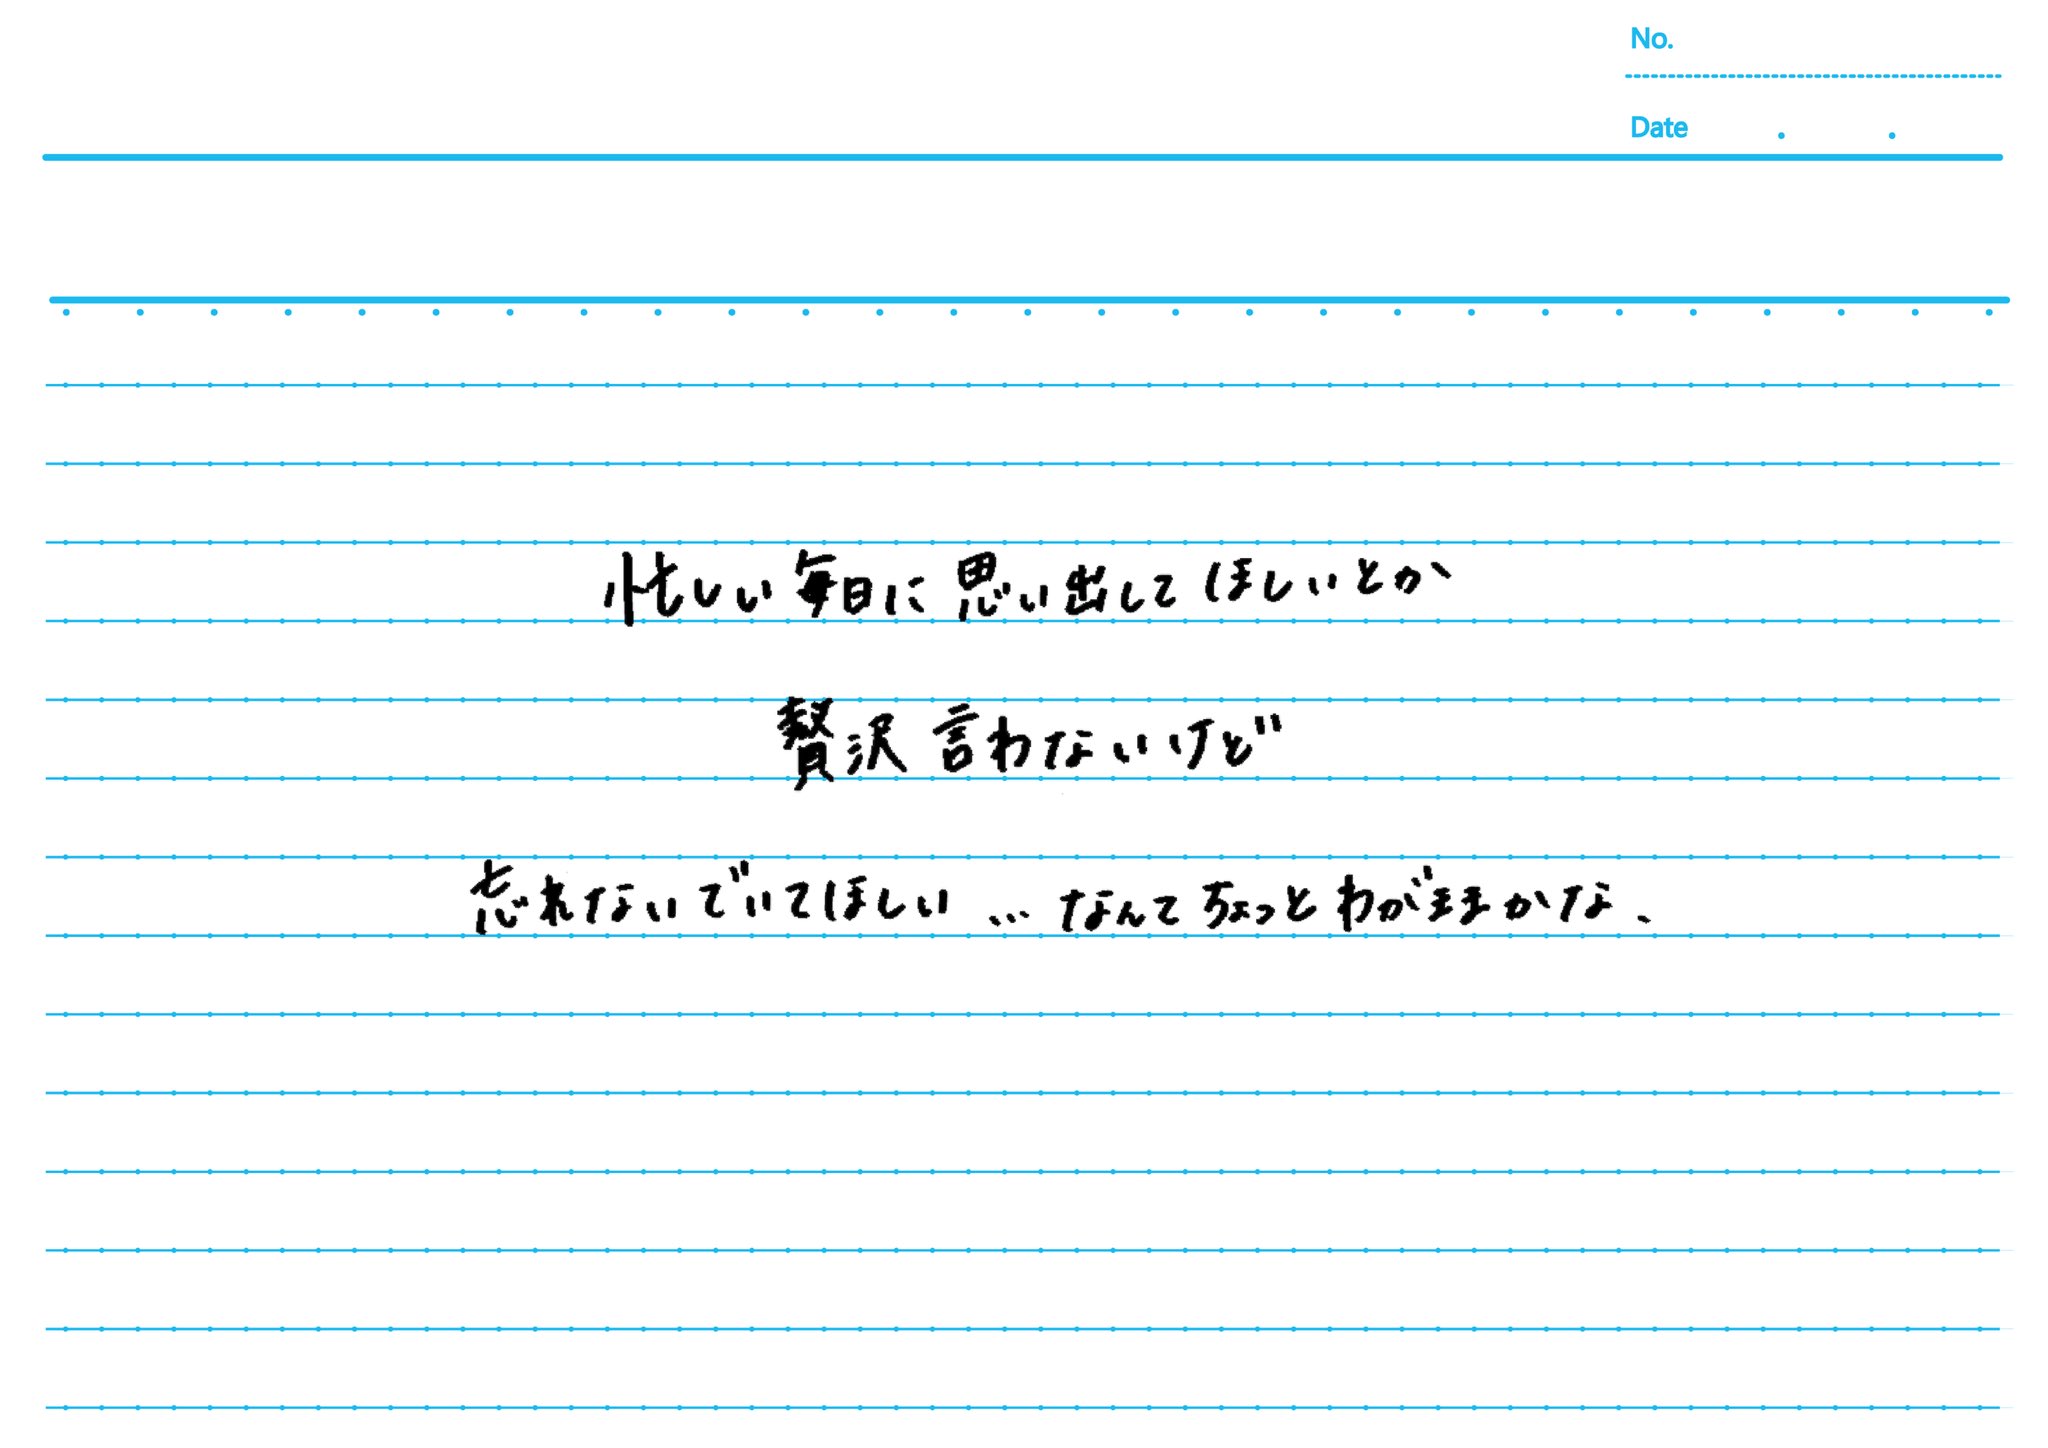 No.
Date . .
忙しい毎日に思い出してほしいとか
贅沢言わないけど
忘れないでいてほしい…なんてちょっとわがままかな、